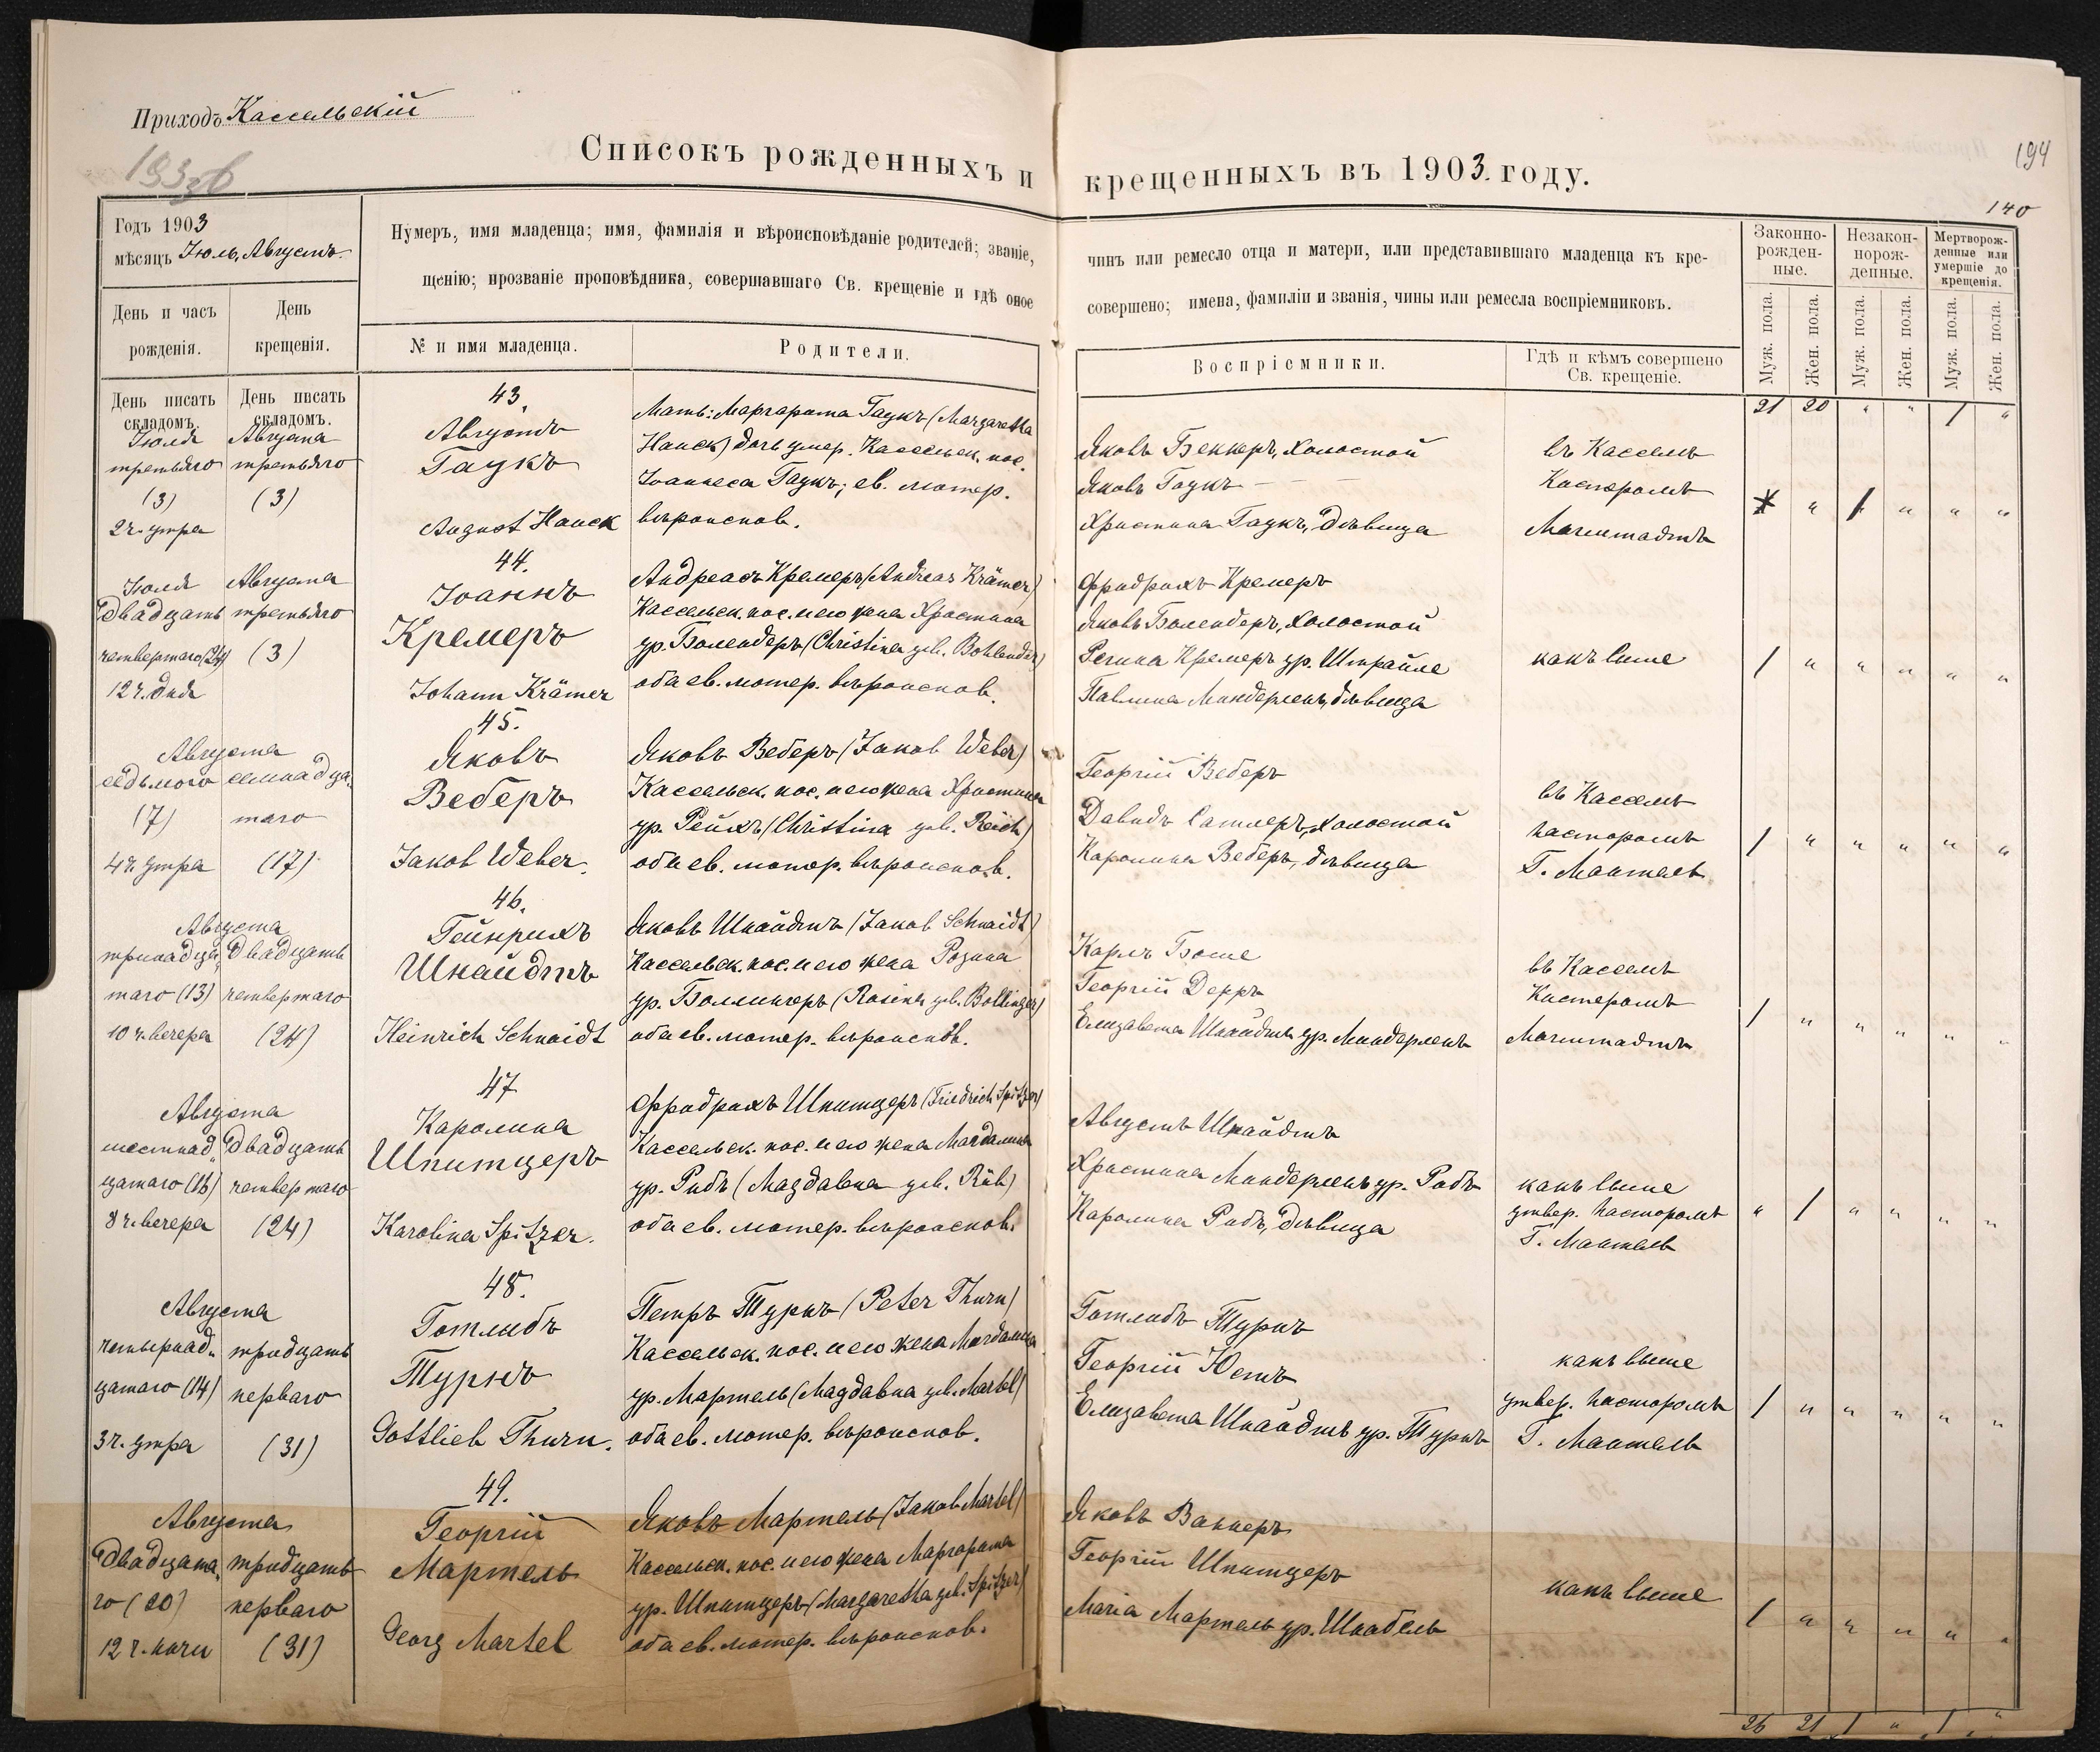 Приходъ Кассельскій
193об
Списокъ рожденныхъ и крещенныхъ въ 1903. году.
194
140
Годъ 1903
мѣсяцъ Іюль, Августъ.
Нумеръ, имя младенца; имя, фамилія и вѣроисповѣданіе родителей; званіе, чинъ или ремесло отца и матери, или представившаго младенца къ кре-
щенію; прозваніе проповѣдника, совершавшаго Св. крещеніе и гдѣ оное совершено; имена, фамиліи и званія, чины или ремесла воспріемниковъ.
Законно-
рожден-
ные.
Незакон-
норож-
денные.
Мертворож-
денные или
умершіе до
крещенія.
День и часъ
рожденія.
День
крещенія.
№ и имя младенца.
Родители.
Воспріемники.
Гдѣ и кѣмъ совершено
Св. крещеніе.
Муж. пола.
Жен. пола.
Муж. пола.
Жен. пола.
Муж. пола.
Жен. пола.
День писать
складомъ.
День писать
складомъ.
21 20 " " 1 "
Іюля
третьяго
(3)
2 ч. утра
Августа
третьяго
(3)
43.
Августъ
Гаукъ
August Hauck
Мать: Маргарета Гаукъ (Margaretha
Hauck) дочь умер. Кассельск. пос.
Іоаннеса Гаукъ; ев. лютер.
вѣроиспов.
Яковъ Беккеръ, холостой
Яковъ Гаукъ — — —
Христина Гаукъ, дѣвица
въ Касселѣ
Кистеромъ
Магштадтъ
" 1 " " "
Іюля
двадцать
четвертаго (24)
12 ч. дня
Августа
третьяго
(3)
44.
Іоаннъ
Кремеръ
Johann Krämer
Андреасъ Кремеръ (Andreas Krämer)
Кассельск. пос. и его жена Христина
ур. Болендеръ (Christina geb. Bohlender)
оба ев. лютер. вѣроиспов.
Фридрихъ Кремеръ
Яковъ Болендеръ, холостой
Регина Кремеръ ур. Штрайле
Павлина Миндерленъ, дѣвица
какъ выше
1 " " " " "
Августа
седьмого
(7)
4 ч. утра
семнадца-
таго
(17)
45.
Яковъ
Веберъ
Jakob Weber.
Яковъ Веберъ (Jakob Weber)
Кассельск. пос. и его жена Христина
ур. Рейхъ (Christina geb. Reich)
оба ев. лютер. вѣроиспов.
Георгій Веберъ
Давидъ Сатлеръ, холостой
Каролина Веберъ, дѣвица
въ Касселѣ
пасторомъ
Г. Мантель
1 " " " " "
Августа
тринадца-
таго (13)
10 ч. вечера
двадцать
четвертаго
(24)
46.
Гейнрихъ
Шнайдтъ
Heinrich Schnaidt
Яковъ Шнайдтъ (Jakob Schnaidt)
Кассельск. пос. и его жена Розина
ур. Боллингеръ (Rosina geb. Bollinger)
оба ев. лютер. вѣроиспов.
Карлъ Боше
Георгій Дерръ
Елизавета Шнайдтъ ур. Миндерленъ
въ Касселѣ
Кистеромъ
Магштадтъ
1 " " " " "
Августа
шестнад-
цатаго (16)
8 ч. вечера
двадцать
четвертаго
(24)
47
Каролина
Шпитцеръ
Karolina Spitzer.
Фридрихъ Шпитцеръ (Friedrich Spitzer)
Кассельск. пос. и его жена Магдалина
ур. Рибъ (Magdalena geb. Rüb)
оба ев. лютер. вѣроиспов.
Августъ Шнайдтъ
Христина Миндерленъ ур. Рибъ
Каролина Рибъ, дѣвица
какъ выше
утвер. пасторомъ
Г. Мантель
" 1 " " " "
Августа
четырнад-
цатаго (14)
3 ч. утра
тридцать
перваго
(31)
48.
Готлибъ
Турнъ
Gottlieb Thurn.
Петръ Турнъ (Peter Thurn)
Кассельск. пос. и его жена Магдалина
ур. Мартель (Magdalena geb. Martel)
оба ев. лютер. вѣроиспов.
Готлибъ Турнъ
Георгій Юстъ
Елизавета Шнайдтъ ур. Турнъ
какъ выше
утвер. пасторомъ
Г. Мантель
1 " " " " "
Августа
двадцата-
го (20)
12 ч. ночи
тридцать
перваго
(31)
49.
Георгій
Мартель
Georg Martel
Яковъ Мартель (Jakob Martel)
Кассельск. пос. и его жена Маргарета
ур. Шпитцеръ (Margaretha geb. Spitzer)
оба ев. лютер. вѣроиспов.
Яковъ Ваннеръ
Георгій Шпитцеръ
Maria Мартель ур. Шнабель
какъ выше
1 " " " " "
26 21 1 " 1 "